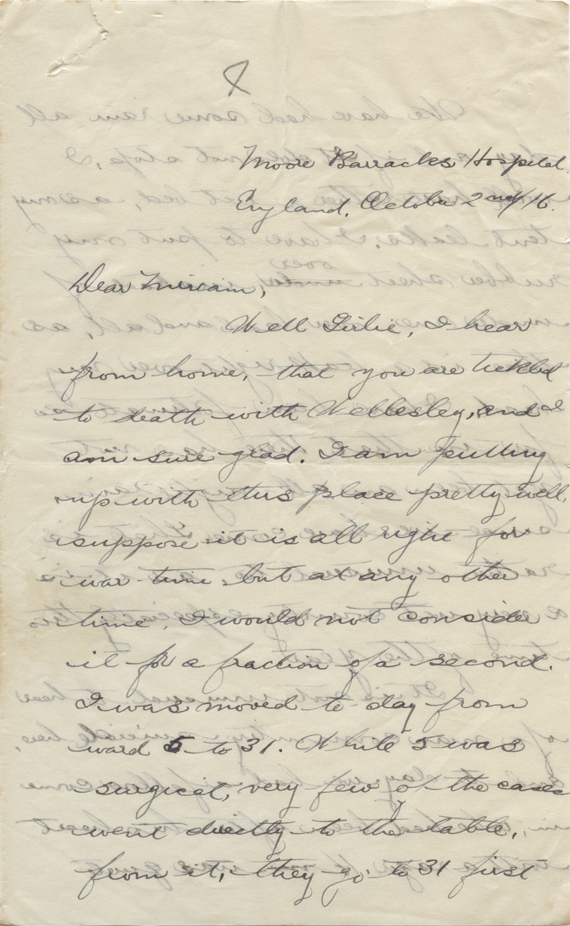 Moore Barracks Hospital
England, October 2nd/16.
Dear Miriam,
Well Girlie, I hear
from home, that you are tickled
to death with Wellesley, and I
am sure glad. I am putting
up with this place pretty well
suppose it is all right for
war time, but at any other
time, I would not consider
it for a fraction of a second.
I was moved to-day from
ward 5 to 31. While 5 was
surgical, very few of the cases
went directly to the table,
from it, they go to 31 first